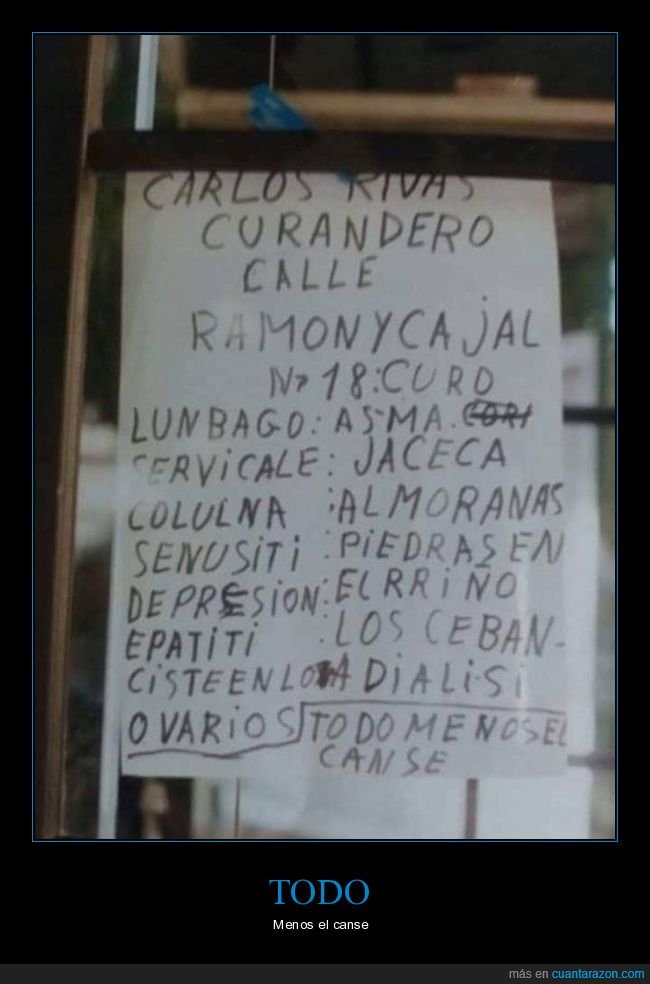 CARLOS RIVAS
CURANDERO
CALLE
RAMONYCAJAL
Nº 18:CURO
LUNBAGO: ASMA.
SERVICALE: JACECA
COLULNA :ALMORANAS
SENUSITI :PIEDRAS EN
DEPRESION: EL RRIÑO
EPATITI :LOS CEBAN-
CISTE EN LO A DIALISI
OVARIOS TODO MENOS EL
CANSE
TODO
Menos el canse
más en cuantarazon.com